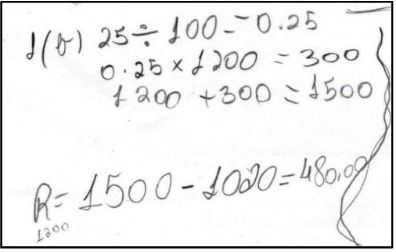 1(b) 25 ÷ 100 = 0.25
0.25 × 1200 = 300
1200 + 300 = 1500
R = 1500 - 1020 = 480,00
1200